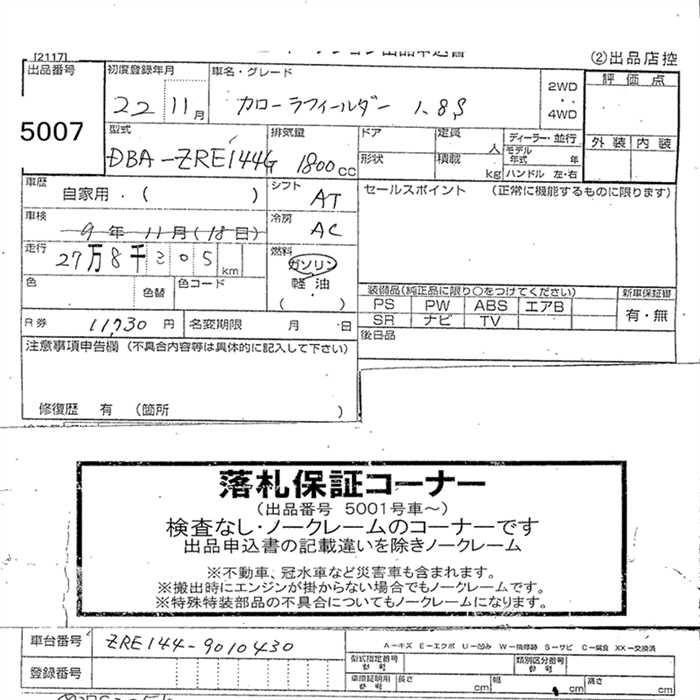 [2117]
②出品店控
出品番号 初度登録年月 車名・グレード 2WD 評価点
22 11月 カローラフィールダー 1.8S 4WD
5007 型式 排気量 ドア 定員 人 ディーラー・並行 外装 内装
DBA-ZRE144G 1800cc 形状 積載 kg モデル年式 年 ハンドル 左・右
車歴 自家用・( ) シフト AT セールスポイント (正常に機能するものに限ります)
車検 9年 11月(18日) 冷房 AC
走行 27万8千305 km 燃料 ガソリン
色 色替 色コード 軽・油 ( ) 装備品(純正品に限り○をつけてください) 新車保証書
PS PW ABS エアB 有・無
R券 11730円 名変期限 月・日 SR ナビ TV
注意事項申告欄 (不具合内容等は具体的に記入して下さい) 後日品
修復歴 有 (箇所 )
落札保証コーナー
(出品番号 5001号車~)
検査なし・ノークレームのコーナーです
出品申込書の記載違いを除きノークレーム
※不動車、冠水車など災害車も含まれます。
※搬出時にエンジンが掛からない場合でもノークレームです。
※特殊特装部品の不具合についてもノークレームになります。
車台番号 ZRE144-9010430 A-キズ E-エクボ U-凹み W-補修跡 S-サビ C-腐食 XX-交換済
登録番号 型式指定番号 類別区分番号
車庫証明用 長さ cm 幅 cm 高さ cm